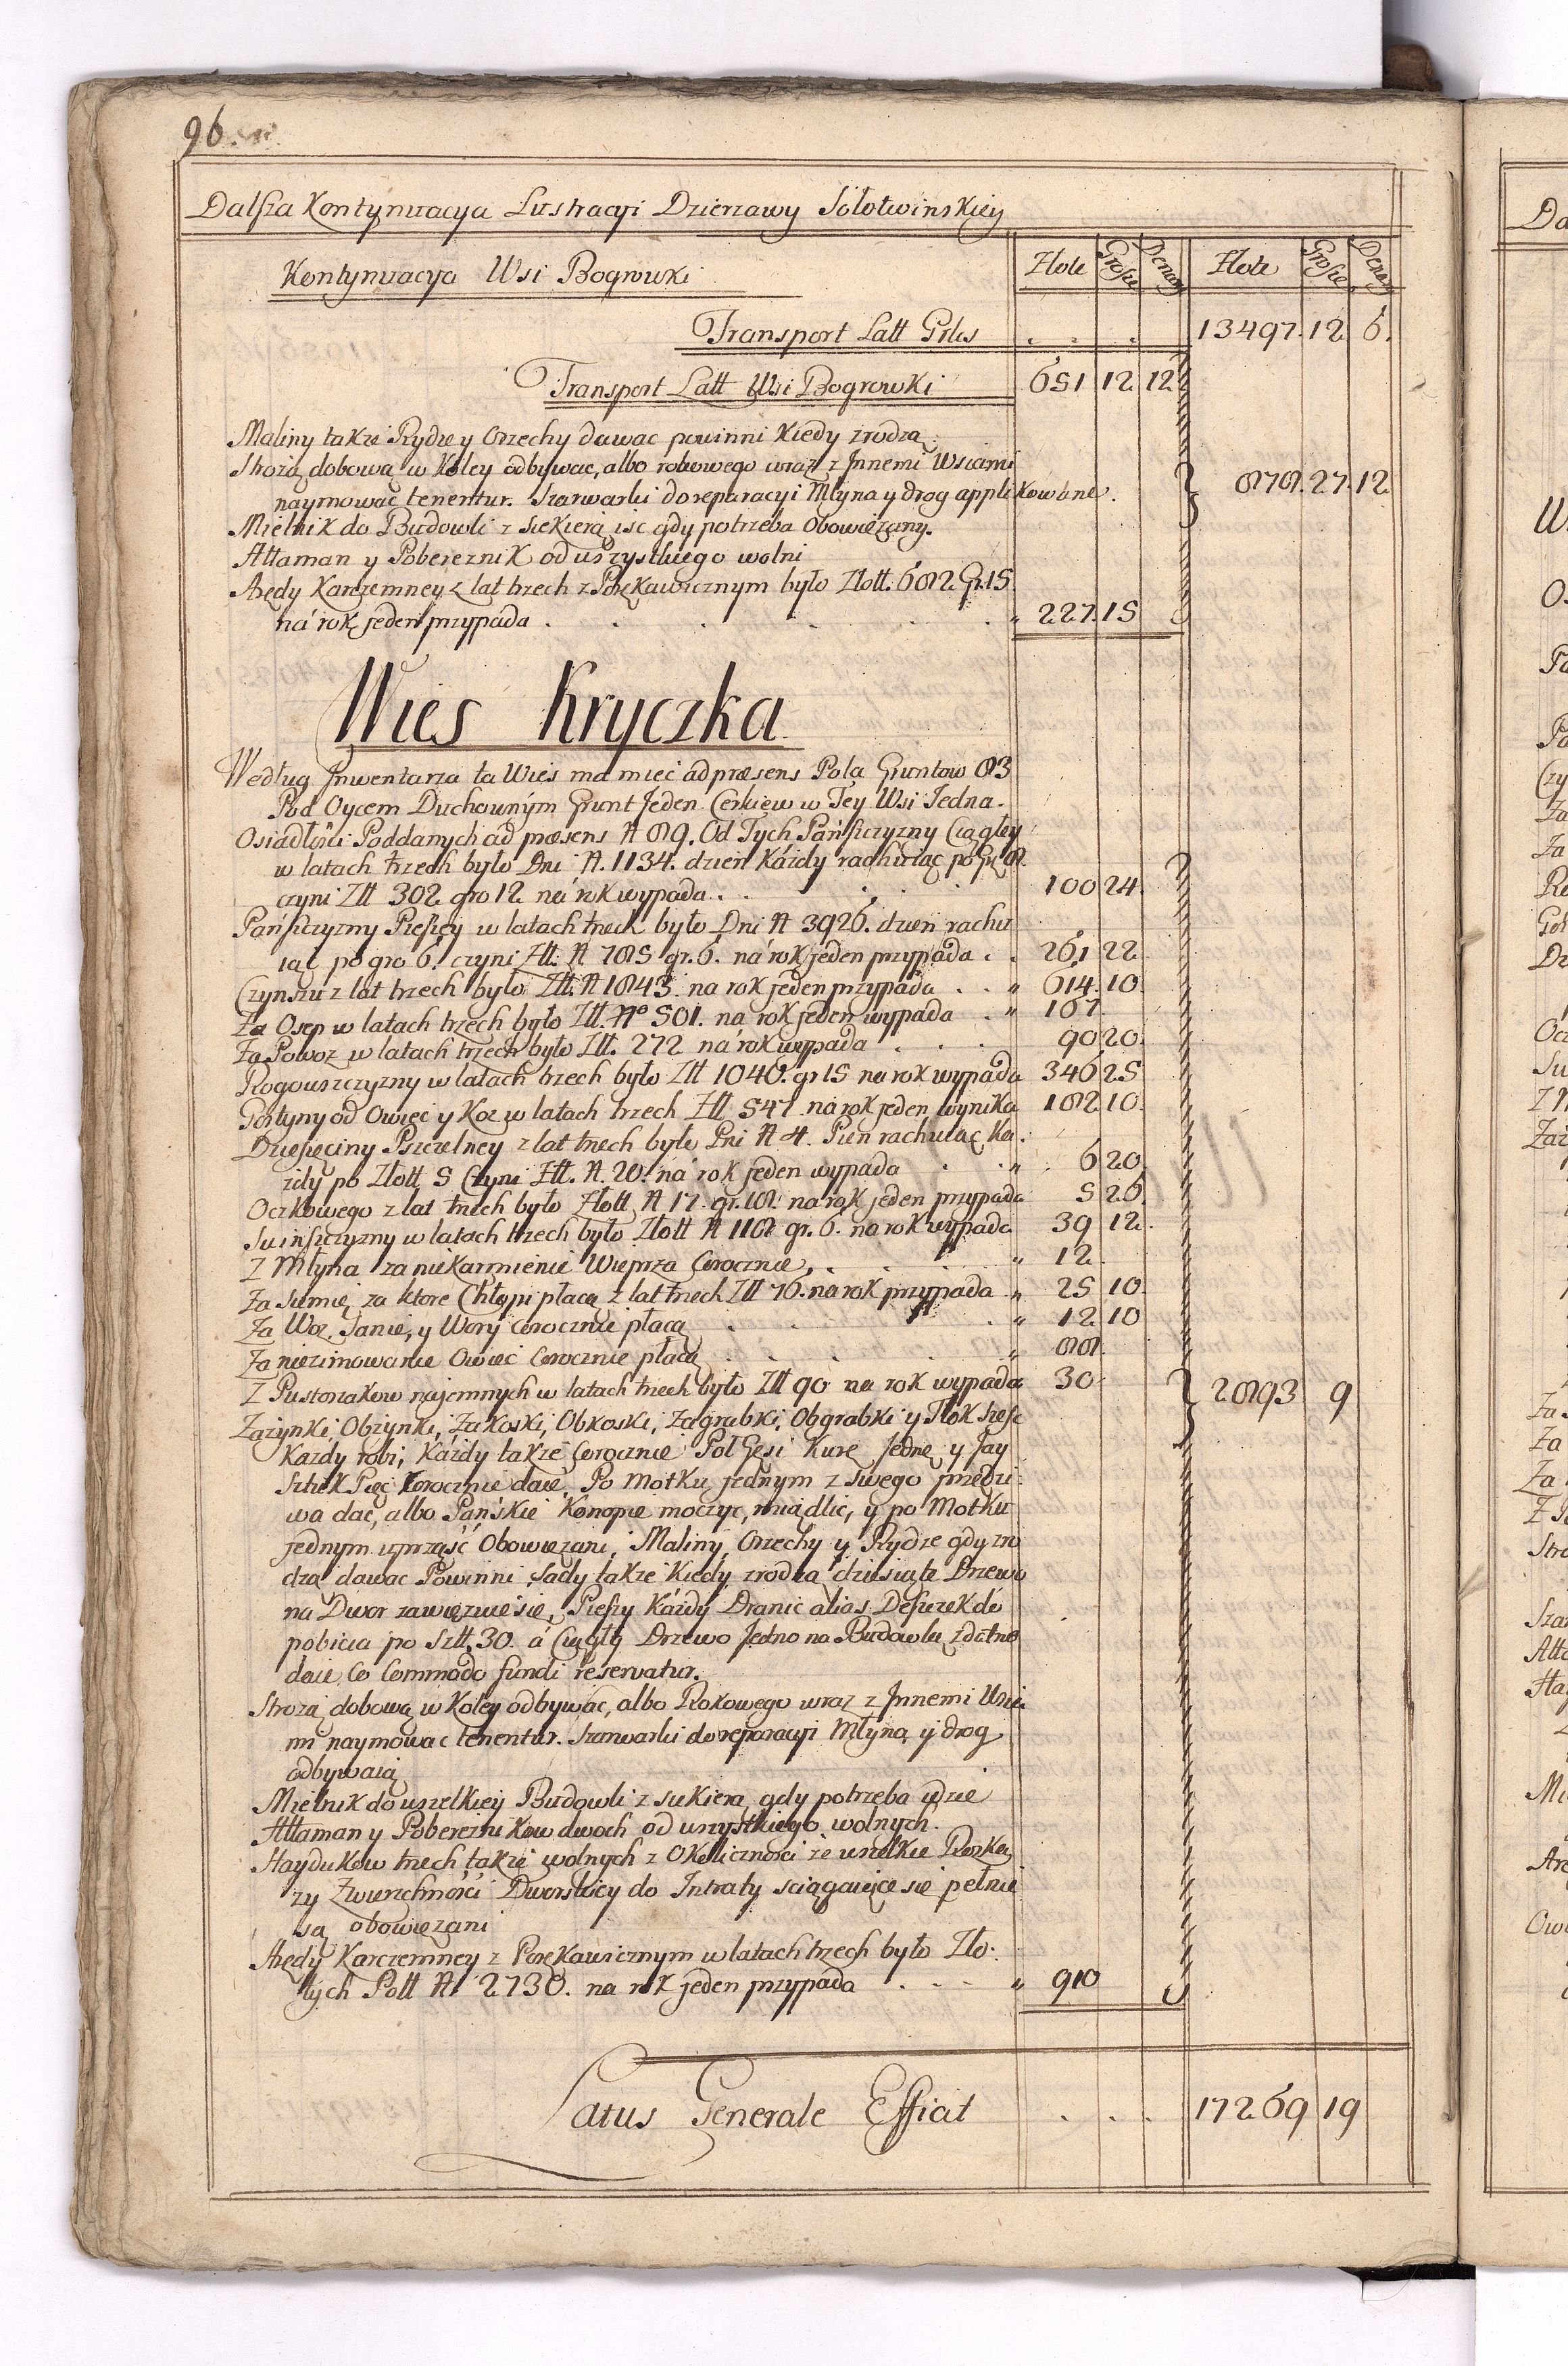 96.
Dalsza Kontynuacya Lustracyi Dzierzawy Sołotwinskiey
Kontynuacya Wsi Bogrowki Złote Grosze Denary Złote Grosze Denary
Transport Latt Grles . . . 13497. 12. 6.
Transport Latt Wsi Bogrowki 651 12 12
Maliny takze Rydze y Orzechy dawac powinni kiedy zrodzą.
Strożą dobową w Koley odbywac, albo rokowego wraz z Jnnemi Wsiami
naymowac tenentur. Szarwarki do reparacyi Młyna y drog applikowane. 878. 27. 12
Mielnik do Budowli z siekierą isc gdy potrzeba Obowiązany.
Attaman y Pobereznik od wszystkiego wolni
Arędy Karczemney z lat trzech z Porękawicznym było Złott. 682 Gr. 15.
ná rok jeden przypada . . . . . „ 227. 15
Wies Kryczka
Według Jnwentarza ta Wies ma miec ad præsens Pola Gruntow 83
Pod Oycem Duchownym Grunt Jeden. Cerkiew w Tey Wsi Jedna.
Osiadłosci Poddanych ad præsens N 89. Od Tych Pańszczyzny Ciągłey
w latach trzech było Dni N. 1134. dzien káżdy rachuiąc po Gr 8.
czyni Złł 302 gro 12 ná rok wypada . . 100 24
Pańszczyzny Pieszey w latach trzech było Dni N 3926. dzien rachu
iąc po gro 6. czyni Złł. N 785 gr. 6. ná rok jeden przypada . . 261 22
Czynszu z lat trzech było Złł. N 1843. na rok jeden przypada . . „ 614. 10.
Za Osep w latach trzech było Złł. No 501. na rok jeden wypada . „ 167
Za Powoz w latach trzech było Złł. 272 ná rok wypada . . . 90 20.
Rogowszczyzny w latach trzech było Złł 1040. gr 15 na rok wypada 346 25
Postyny od Owiec y Koz w latach trzech Złł 547 na rok jeden wynika 182 10.
Dziesięciny Pszczelney z lat trzech było Pni N 4. Pien rachuiąc Ka.
zdy po Złott 5 Czyni Złł. N. 20. ná rok jeden wypada . . „ 6 20
Oczkowego z lat trzech było Złott N 17. gr. 18. na rok jeden przypada 5 26
Swinszczyzny w latach trzech było Złott N 118 gr. 6. na rok wypada 39 12.
Z Młyna za niekarmienie Wieprza Corocznie, . . . „ 12.
Za siemie za ktore Chłopi płacą z lat trzech Złł 76. na rok przypada „ 25 10.
Za Woz, Sanie, y Wory corocznie płacą . . . „ 12 10
Za niezimowanie Owiec Corocznie płacą . . . „ 88.
Z Pustoszakow najemnych w latach trzech było Złł 90 na rok wypada 30. 2893 9
Zażynki, Obżynki, Zakoski, Obkoski, Zagrabki, Obgrabki y Tłok szesc
Kazdy robi, Káżdy takze corocznie Poł Gęsi Kurę Jednę y Jay
Sztuk Pięc Corocznie daie. Po Motku jednym z swego przędzi:
wa dac, albo Pańskie Konopie moczyc, miądlic, y po Motku
jednym uprząść Obowiązani, Maliny, Orzechy y Rydze gdy zro
dzą dawac Powinni, Sady takze kiedy zrodzą dziesiąte Drzewo
na Dwor zawięzuie się, Pieszy Káżdy Dranic alias Deszczek do
pobicia po Sztt. 30. á Ciągły Drzewo Jedno na Budowlą zdatne
daie, Co Commodo fundi reservatur.
Strożą dobową w Koley odbywac, albo Rokowego wraz z Jnnemi Wsia
mi naymowac tenentur. Szarwarki do reparacyi Młyna y drog
odbywaią
Mielnik do wszelkiey Budowli z siekierą gdy potrzeba idzie
Attaman y Pobereznikow dwoch od wszystkiego wolnych.
Haydukow trzech takze wolnych z Okolicznosci że wszelkie Rozka
zy Zwierzchności Dworskiey do Intraty sciągaiące się pełnic
są obowięzani
Arędy Karczemney z Porękawicznym w latach trzech było Zło:
tych Poll N 2730. na rok jeden przypada . . . „ 910
Latus Generale Efficit . . . 17269 19